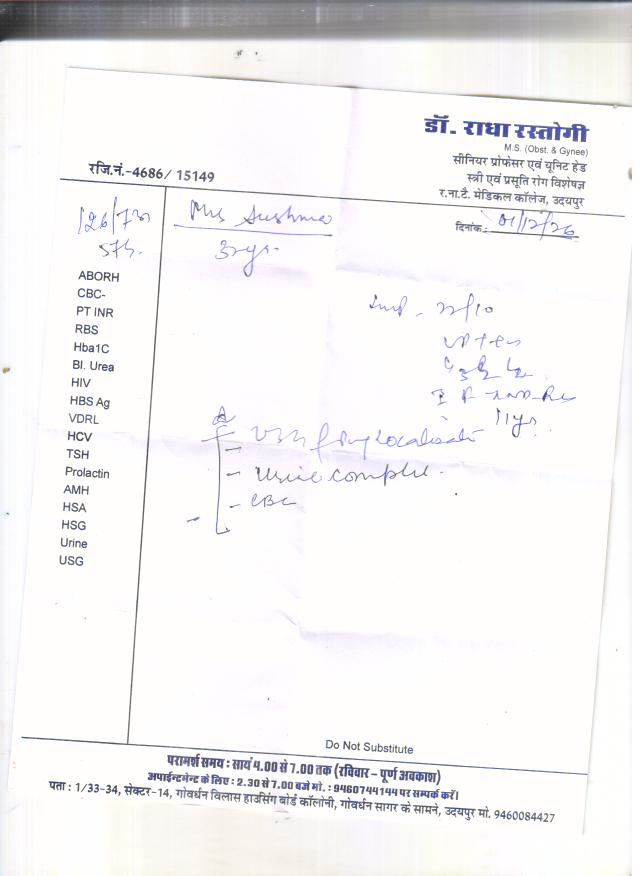 डॉ. राधा रस्तोगी
M.S. (Obst. & Gynee)
सीनियर प्रोफेसर एवं यूनिट हेड
स्त्री एवं प्रसूति रोग विशेषज्ञ
र.ना.टै. मेडिकल कॉलेज, उदयपुर
रजि.नं.-4686/ 15149
दिनांक: 01/12/26
126/72
Mrs Sushma
ABORH
CBC-
PT INR
RBS
Hba1C
Bl. Urea
HIV
HBS Ag
VDRL
HCV
TSH
Prolactin
AMH
HSA
HSG
Urine
USG
- CBC
Do Not Substitute
परामर्श समय : सायं 4.00 से 7.00 तक (रविवार – पूर्ण अवकाश)
अपाईन्टमेन्ट के लिए : 2.30 से 7.00 बजे मो. : 9460744144 पर सम्पर्क करें।
पता : 1/33-34, सेक्टर-14, गोवर्धन विलास हाउसिंग बोर्ड कॉलोनी, गोवर्धन सागर के सामने, उदयपुर मो. 9460084427